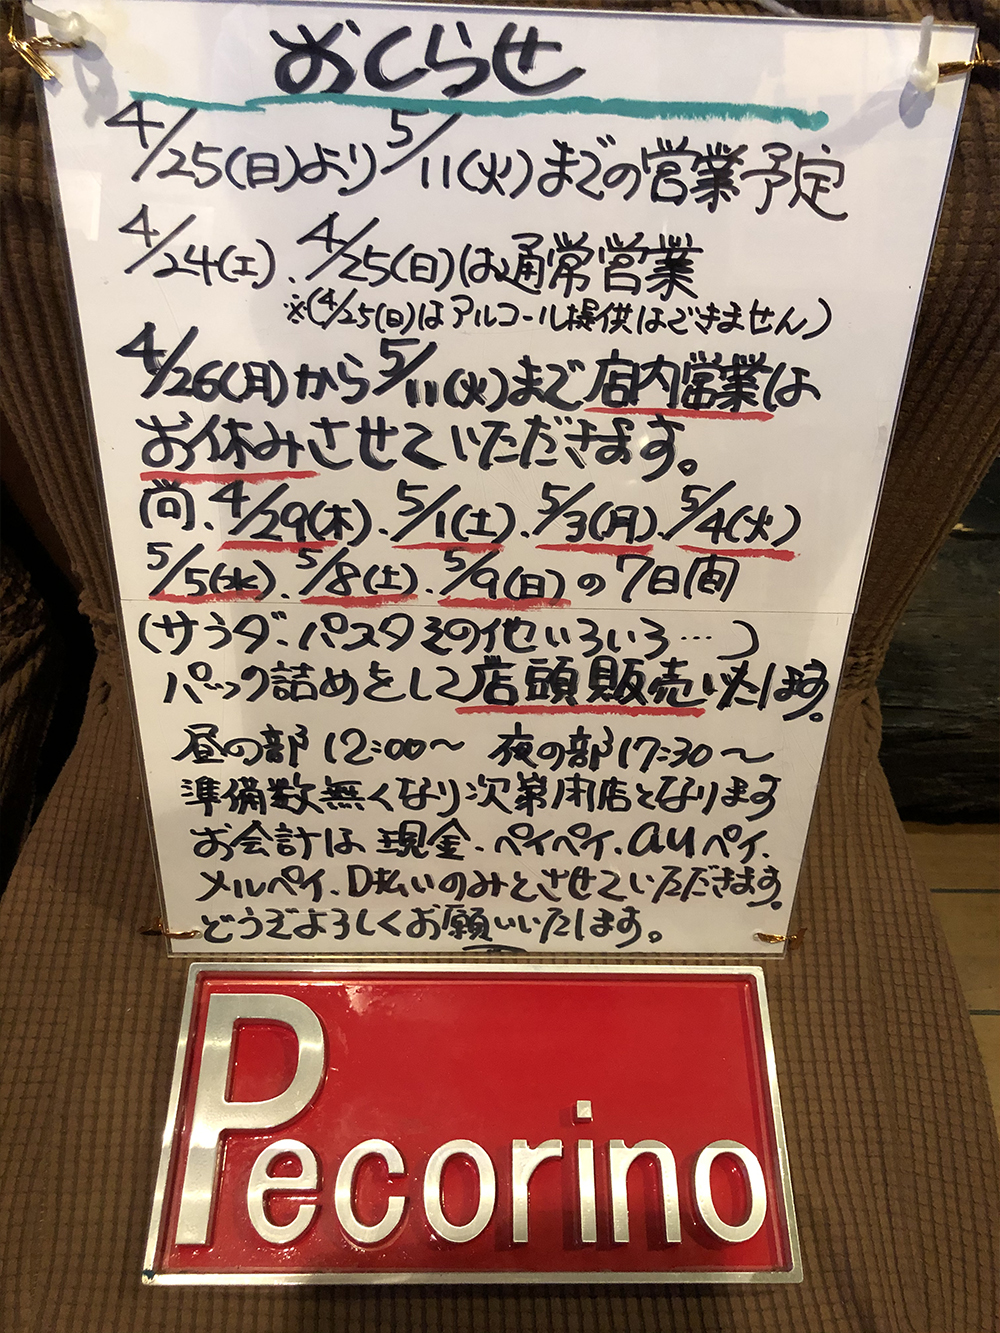 おしらせ
4/25(日)より5/11(火)までの営業予定
4/24(土)、4/25(日)は通常営業
※(4/25(日)はアルコール提供はできません)
4/26(月)から5/11(火)まで店内営業は
お休みさせていただきます。
尚、4/29(木)、5/1(土)、5/3(月)、5/4(火)
5/5(水)、5/8(土)、5/9(日)の7日間
(サラダ、パスタその他いろいろ…)
パック詰めをして店頭販売いたします。
昼の部12:00〜 夜の部17:30〜
準備数無くなり次第閉店となります
お会計は現金、ペイペイ、auペイ、
メルペイ、D払いのみとさせていただきます。
どうぞよろしくお願いいたします。
Pecorino